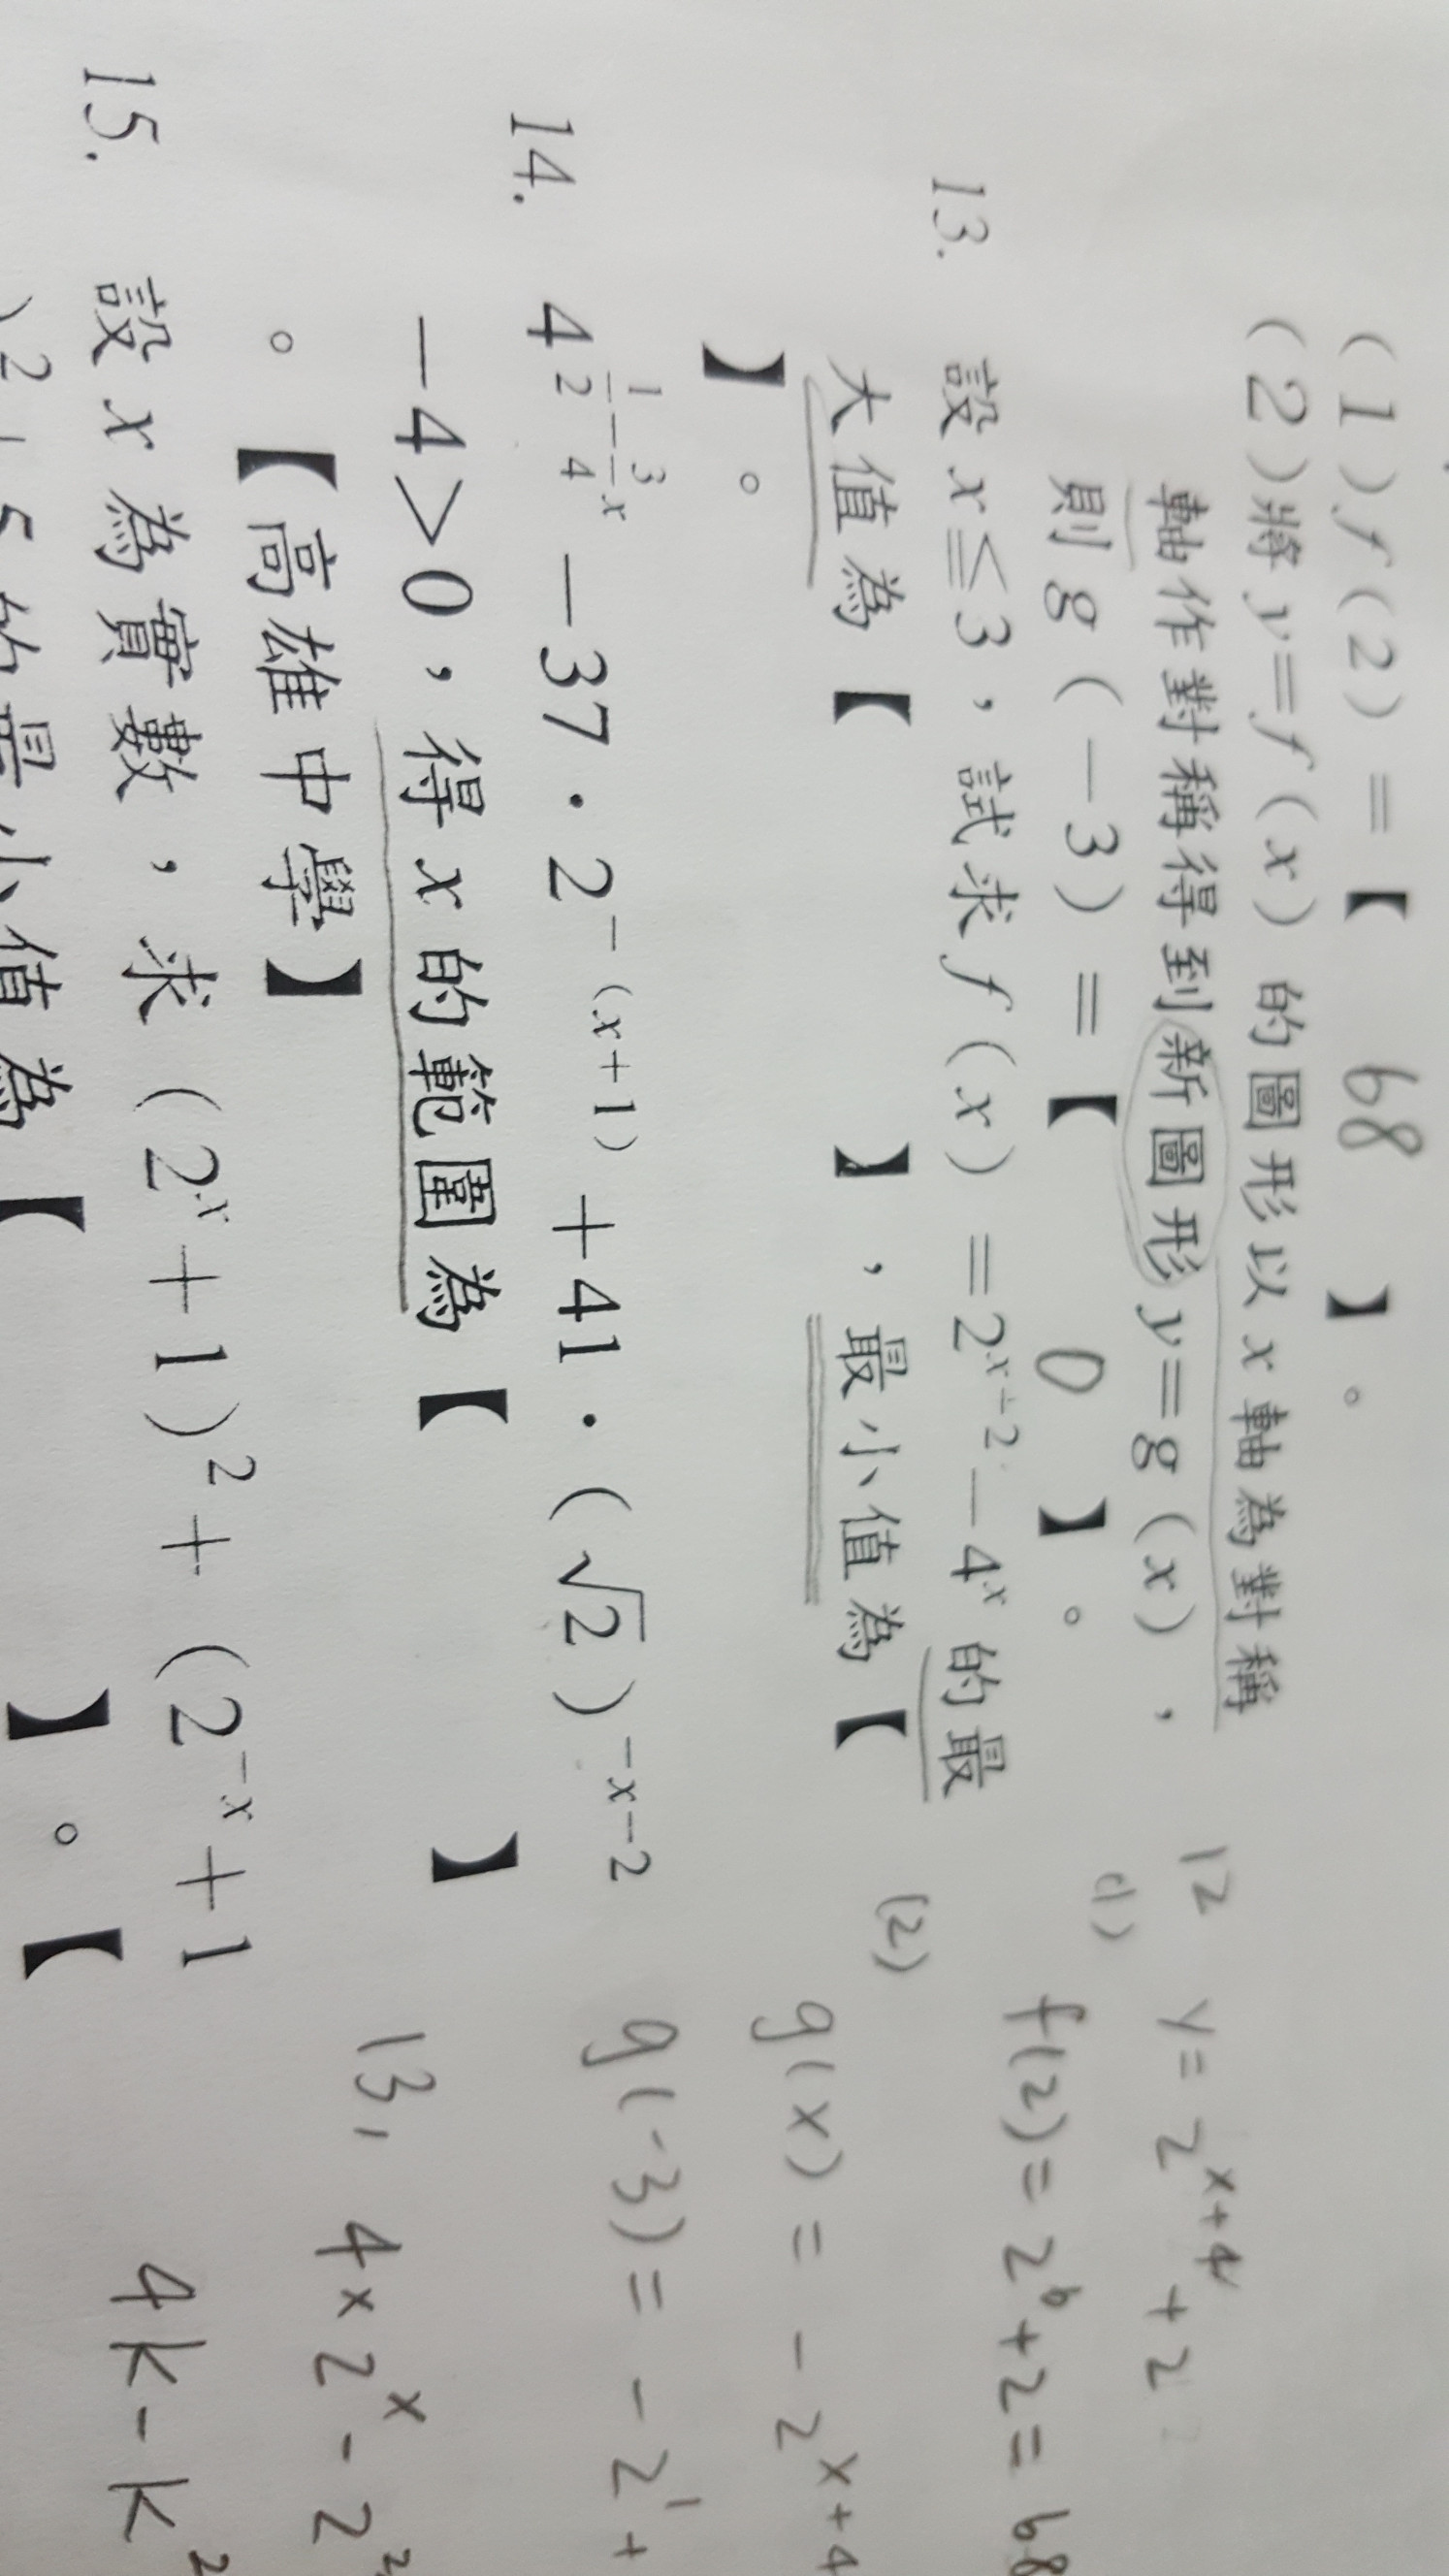 (1) f(2) =【 68 】。
(2)將 y=f(x) 的圖形以 x 軸為對稱
軸作對稱得到新圖形 y=g(x),
則 g(-3) =【 0 】。
13. 設 x≦3,試求 f(x) =2^{x+2}-4^x 的最
大值為【 】,最小值為【
】。
14. 4^{\frac{1}{2}-\frac{3}{4}x}-37·2^{-(x+1)}+41·(√2)^{-x-2}
-4>0,得 x 的範圍為【 】
。【高雄中學】
15. 設 x 為實數,求 (2^x+1)^2+(2^{-x}+1
)^2+5 的最小值為【 】。【
12 y=2^{x+4}+2
(1) f(2)=2^6+2=68
(2) g(x)=-2^{x+4}
g(-3)=-2^1+
13, 4×2^x-2^2
4k-k^2